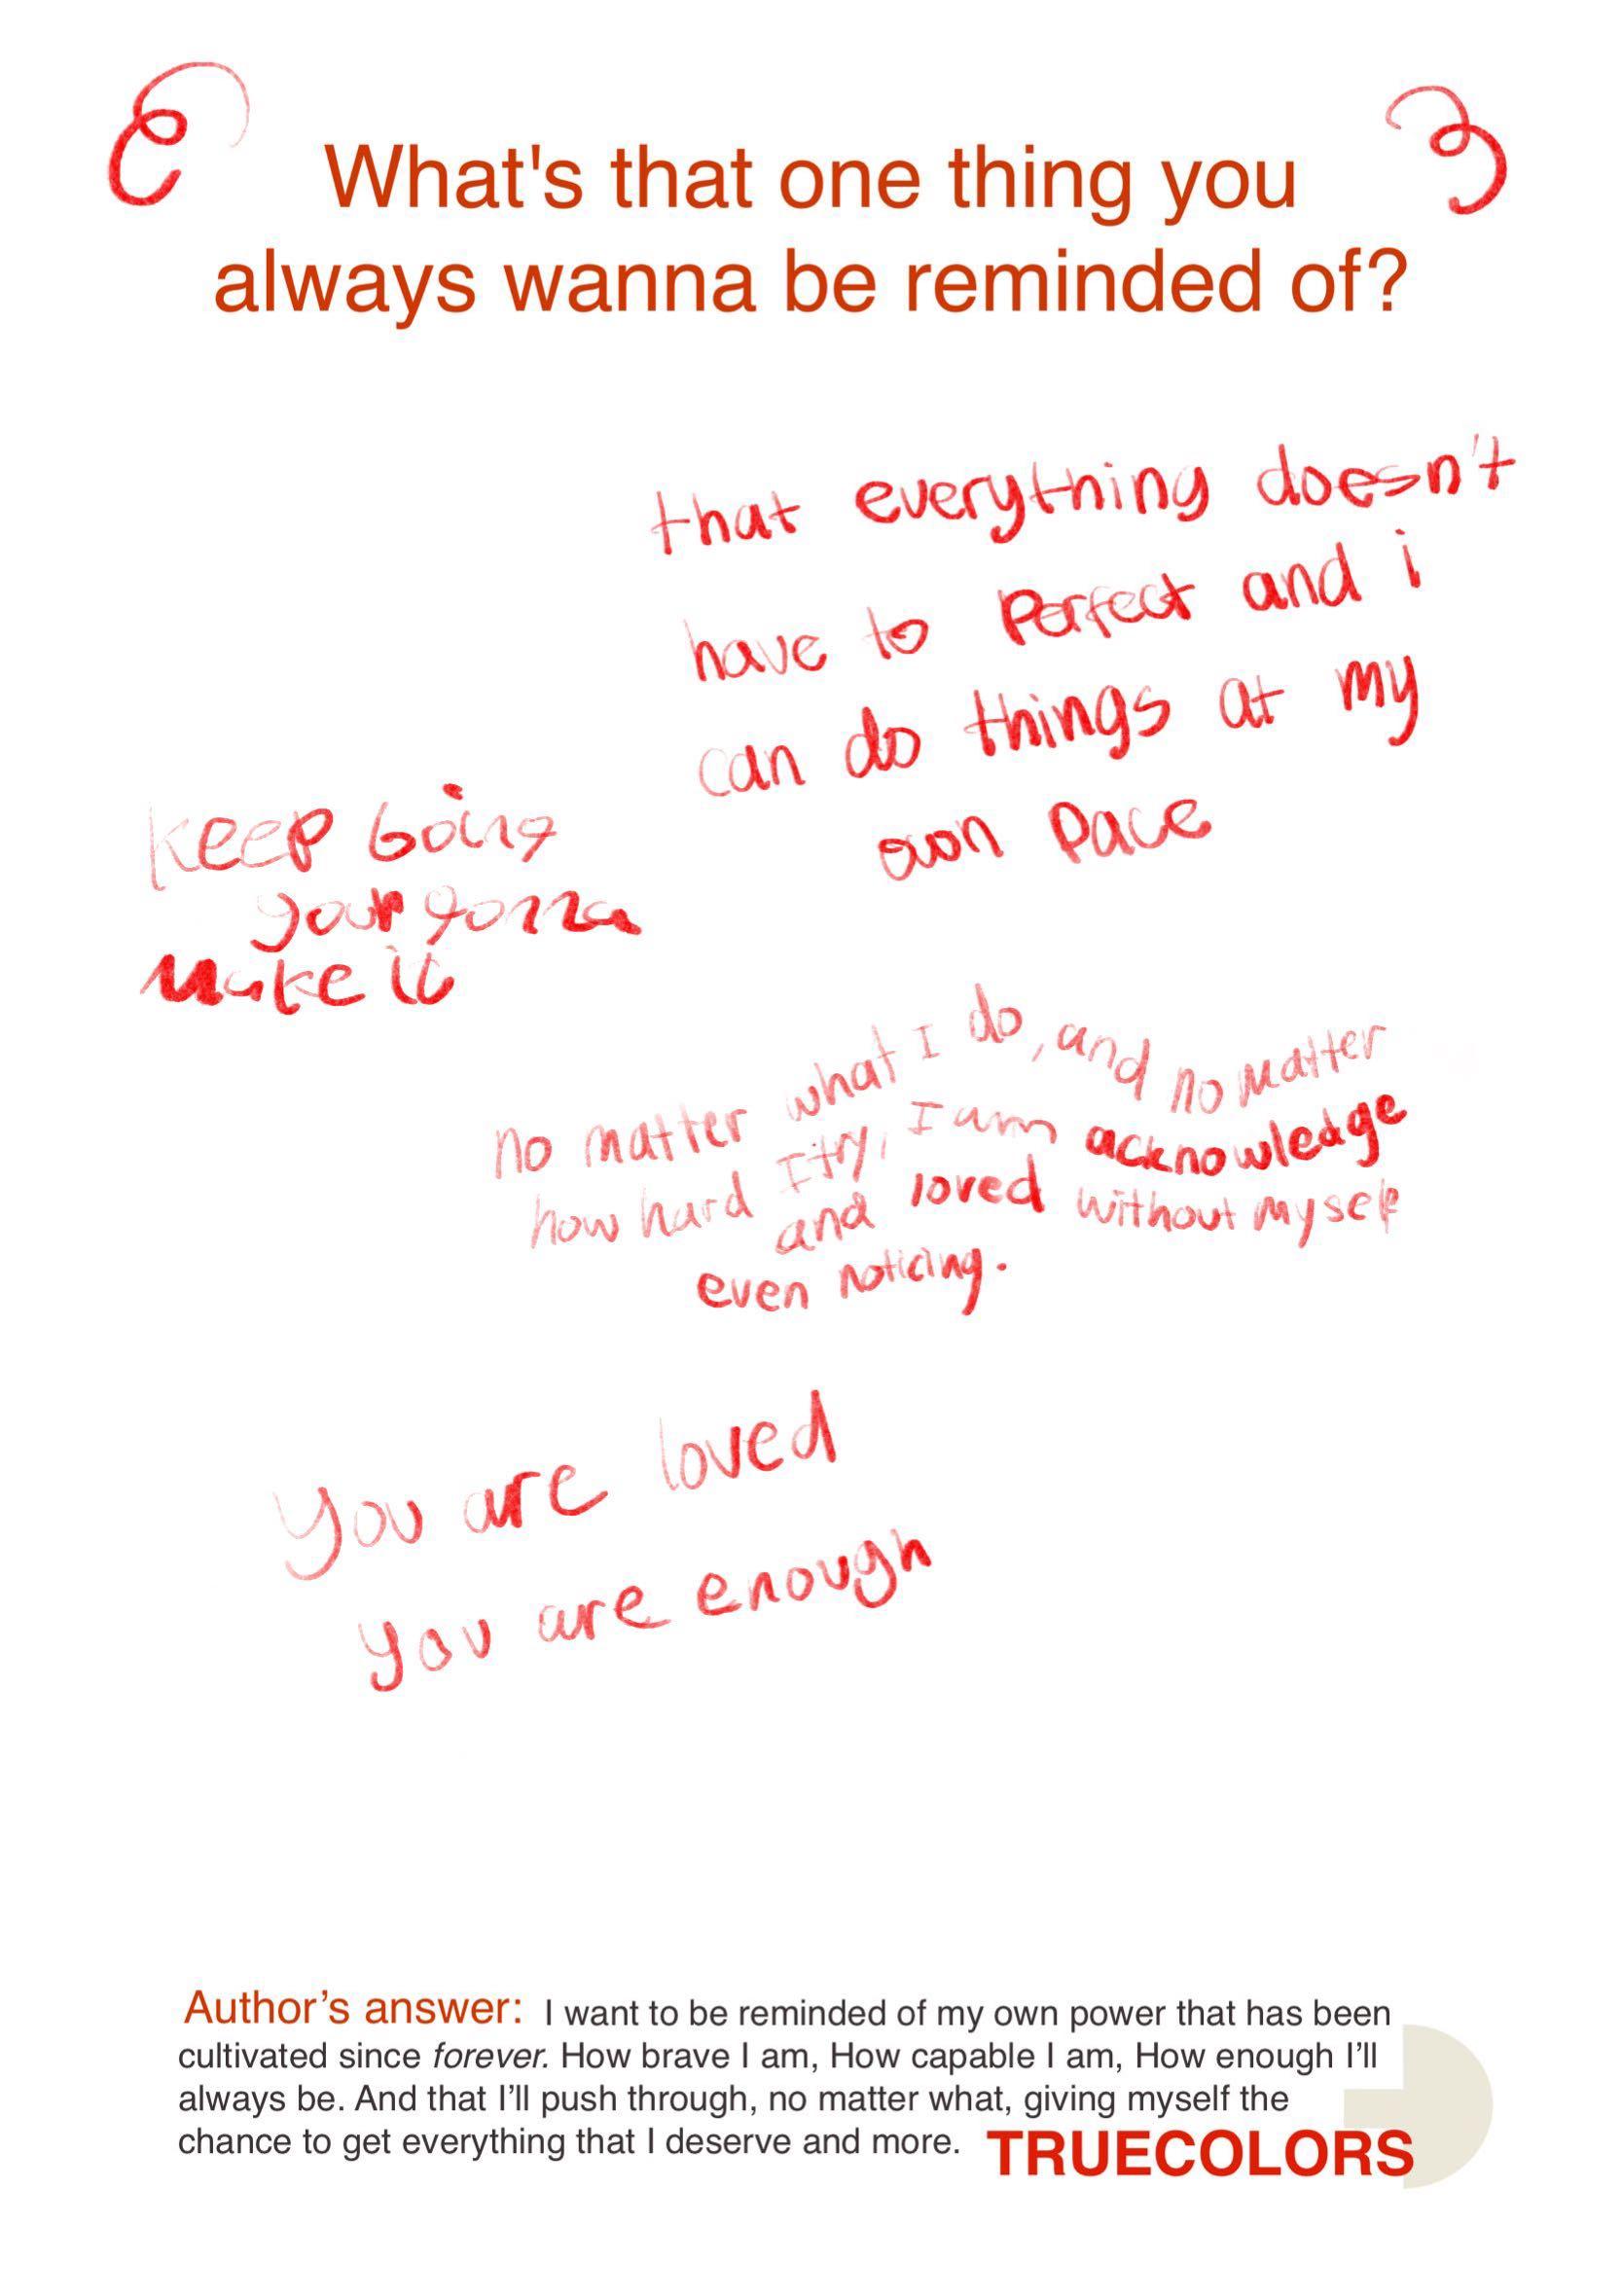 What's that one thing you
always wanna be reminded of?
that everything doesn't
have to Perfect and i
can do things at my
own Pace
Keep Going
your gonna
Make it
no matter what I do, and no matter
how hard I try, I am acknowledge
and loved without myself
even noticing.
You are loved
you are enough
Author’s answer: I want to be reminded of my own power that has been
cultivated since forever. How brave I am, How capable I am, How enough I’ll
always be. And that I’ll push through, no matter what, giving myself the
chance to get everything that I deserve and more.
TRUECOLORS